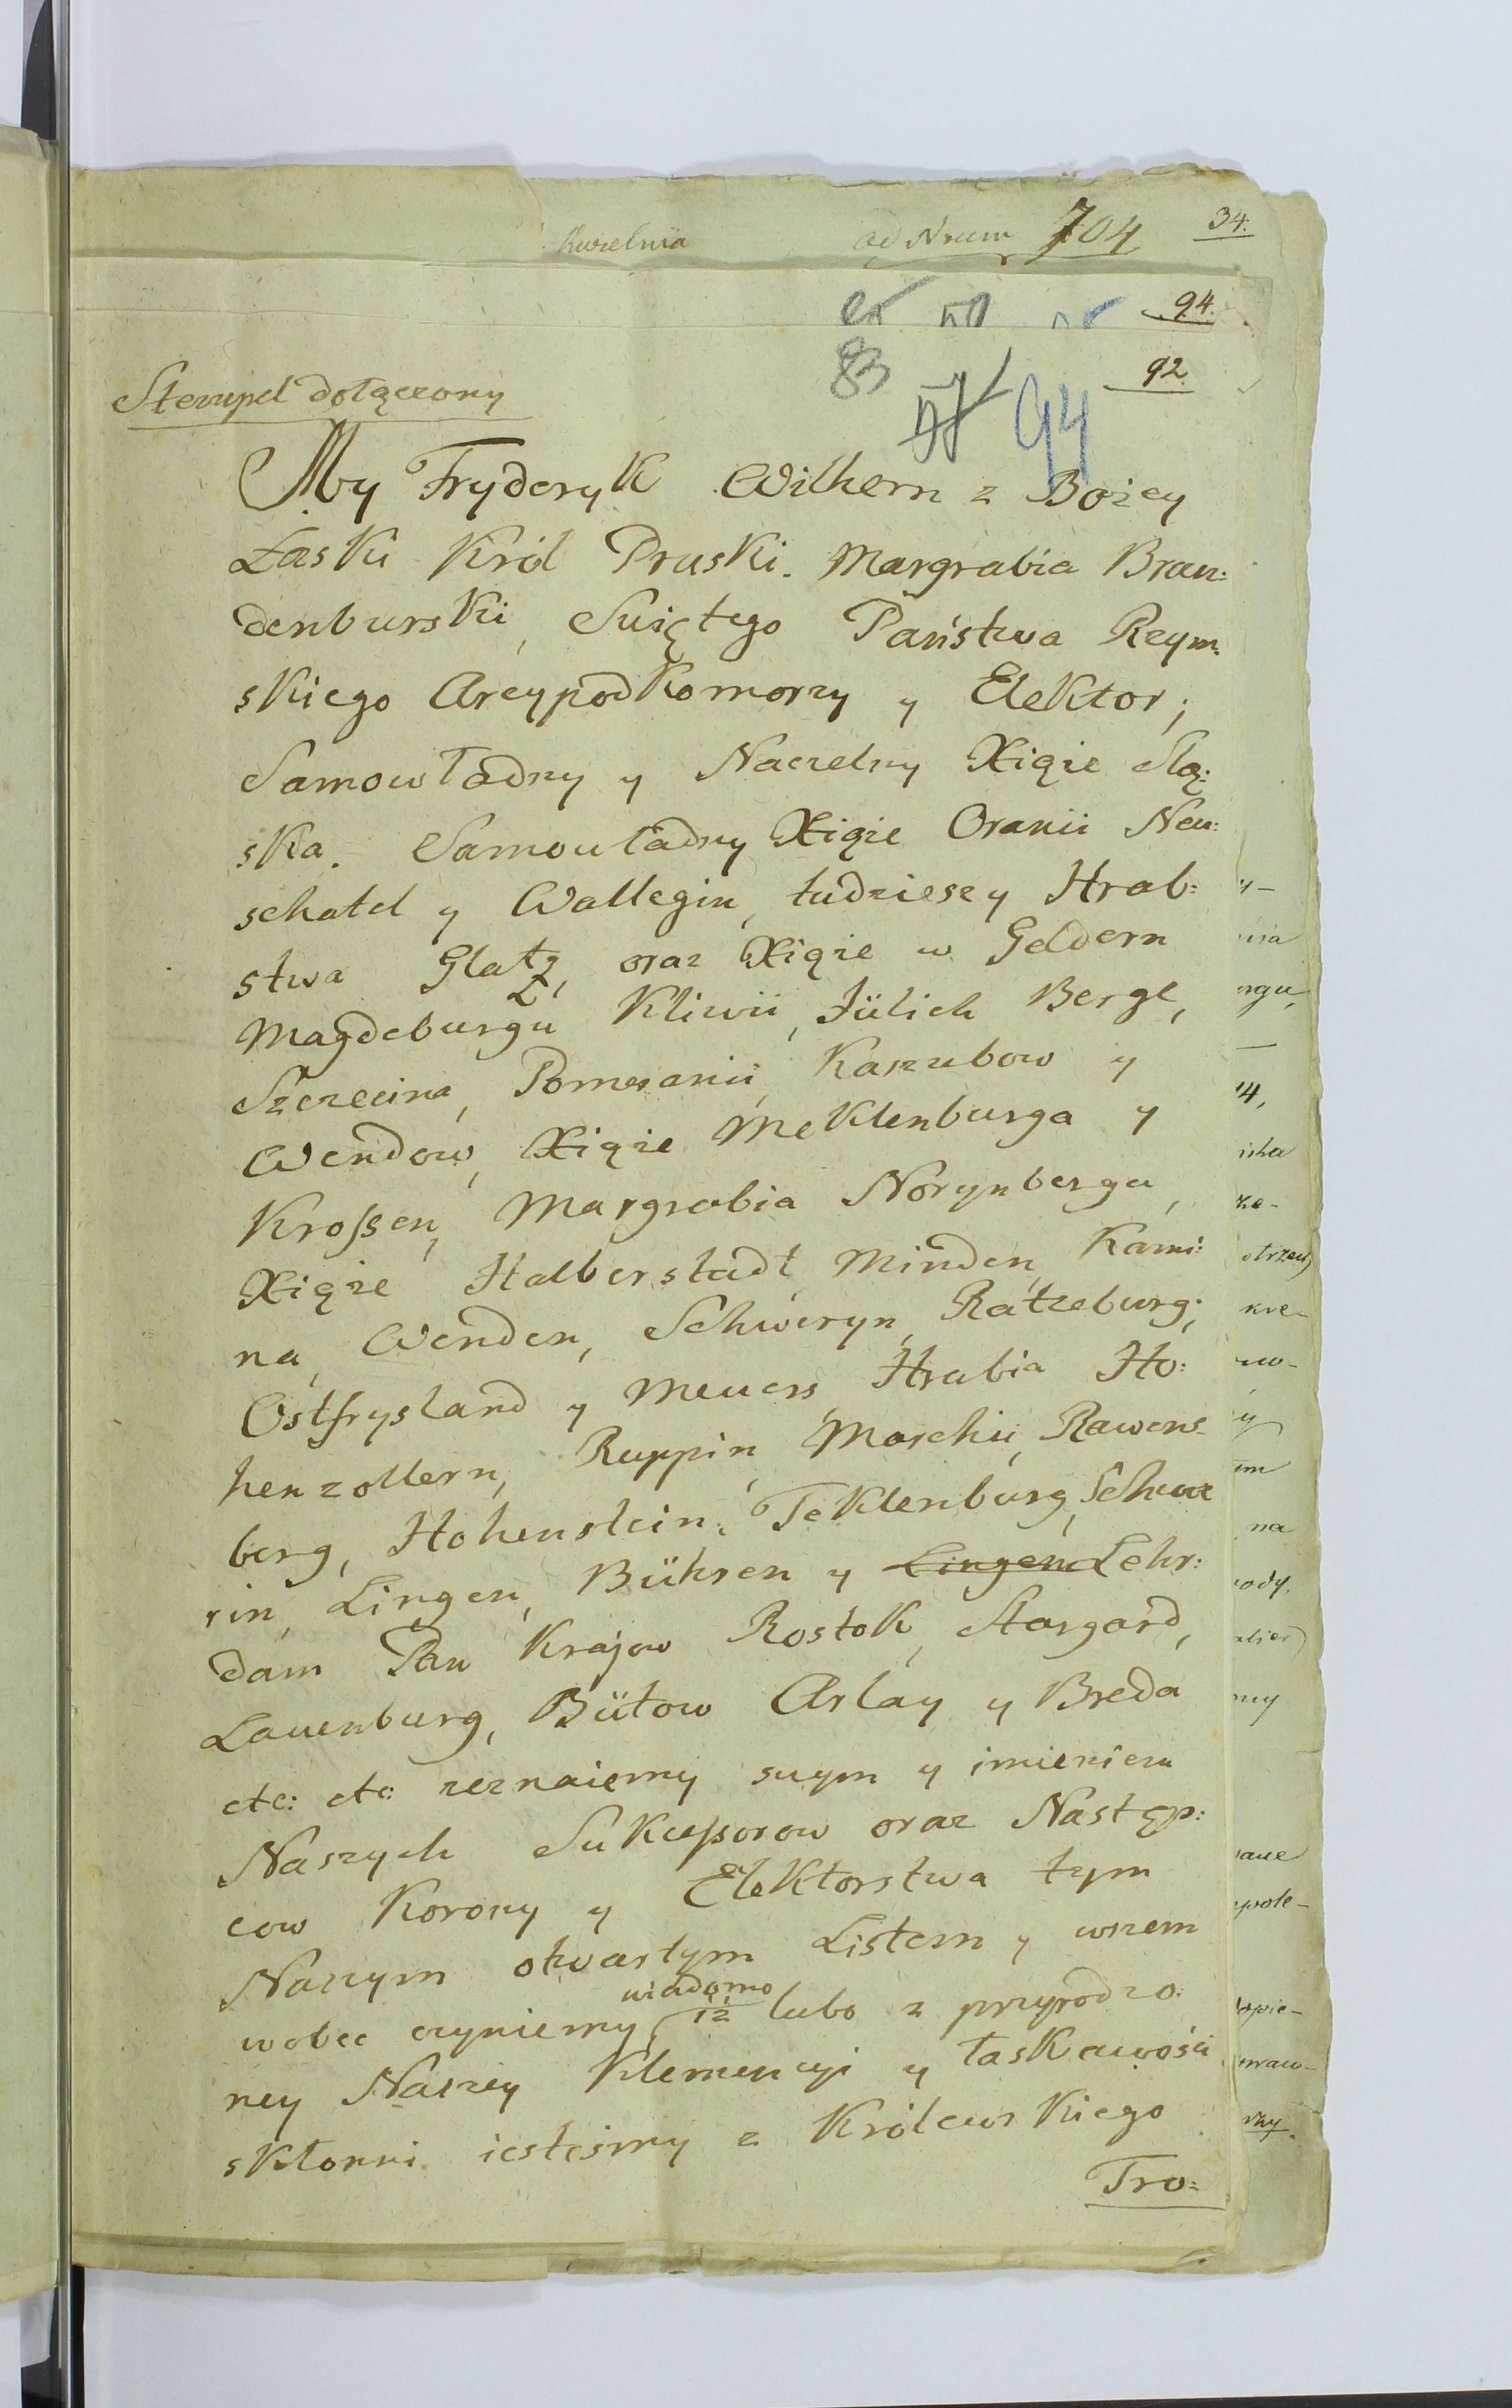 Kuzelnia ad Nrum 704 34.
94.
83 92.
94
Stempel dołączony
My Fryderyk Wilhem z Bożey
Łaski Król Pruski. Margrabia Bran:
denburski, Swiętego Państwa Rzym:
skiego Arcypodkomorzy y Elektor;
Samowładny y Naczelny Xiąże Slą:
ska. Samowładny Xiąże Oranii Neu:
schatel y Wallegin, tudziesz y Hrab:
stwa Glatz, oraz Xiąże w Geldern
Magdeburgu Kliwii, Jülich Berge,
Szczecina, Pomeranii, Kaszubow y
Wendow, Xiąże Meklenburga y
Kroßen, Margrabia Norynberga,
Xiąże Halberstadt, Minden, Kami:
na, Wenden, Schweryn, Ratzeburg;
Ostfrysland y Meuers, Hrabia Ho:
henzollern, Ruppin, Marchii, Rawens
berg, Hohenstein, Teklenburg, Schwe
rin, Lingen, Bühren y Lingen Lehr:
dam Pan Krajow Rostok, Stargard,
Lauenburg, Bütow Arlay y Breda
etc: etc: zeznaiemy swym y imieniem
Naszych Sukceßorow oraz Następ:
cow Korony y Elektorstwa tym
Naszym otwartym Listem y wszem
wiadomo
wobec czyniemy, iż lubo z przyrodzo:
ney Naszey Klemencyi y łaskawości
skłonni iesteśmy z Królewskiego
Tro: